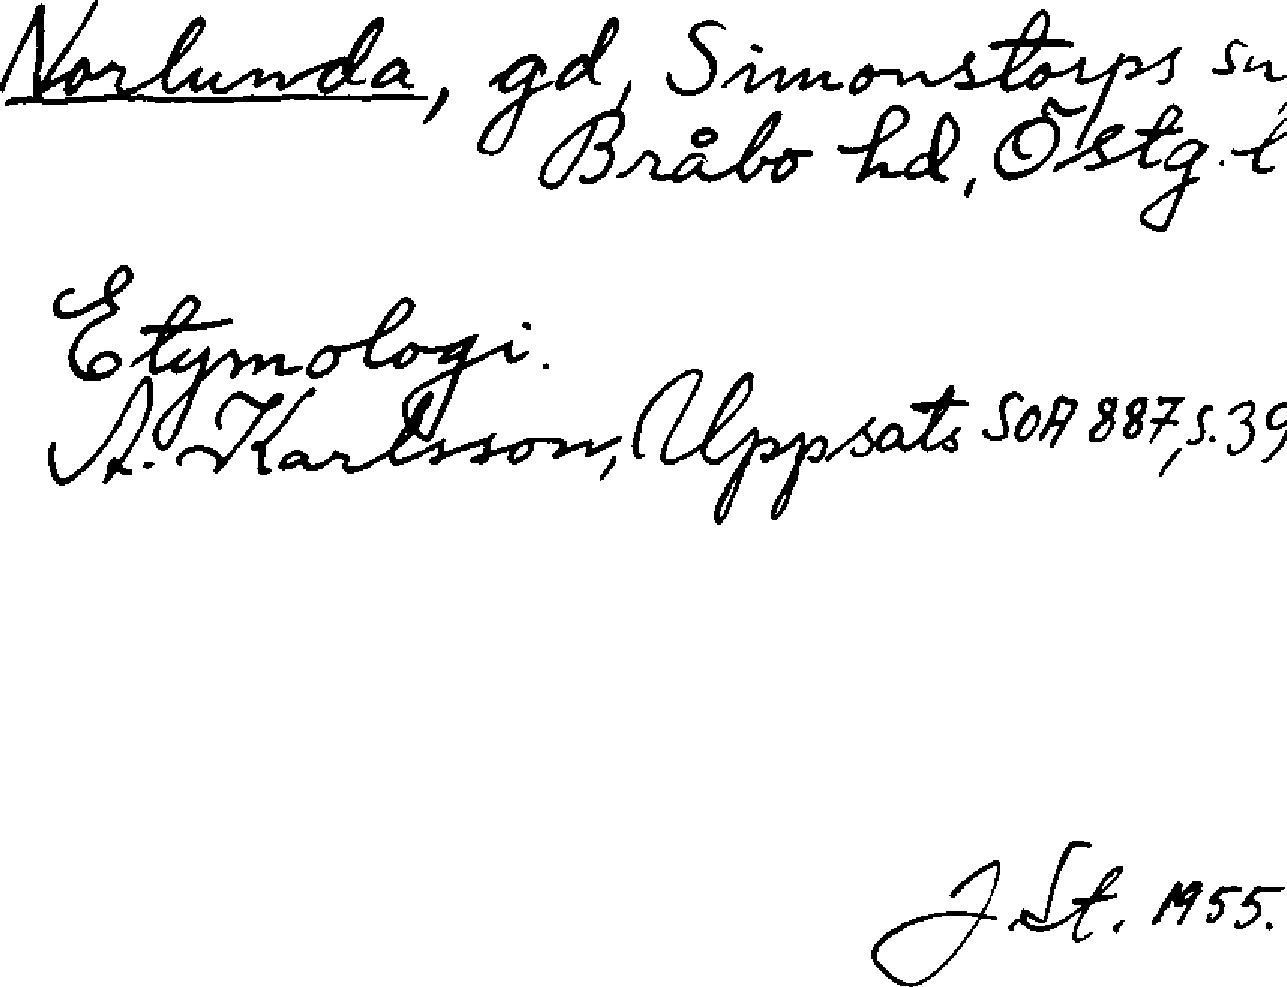 Norlunda, gd, Simonstorps sn,
Bråbo hd, Östg. l
Etymologi.
A. Karlsson, Uppsats SOA 887, s. 39
J. St. 1955.